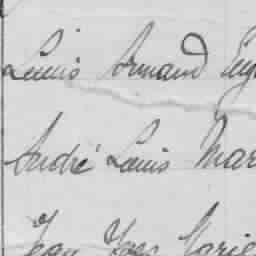 Louis Armand Eug
André Louis Mar
Jean Yves Marie